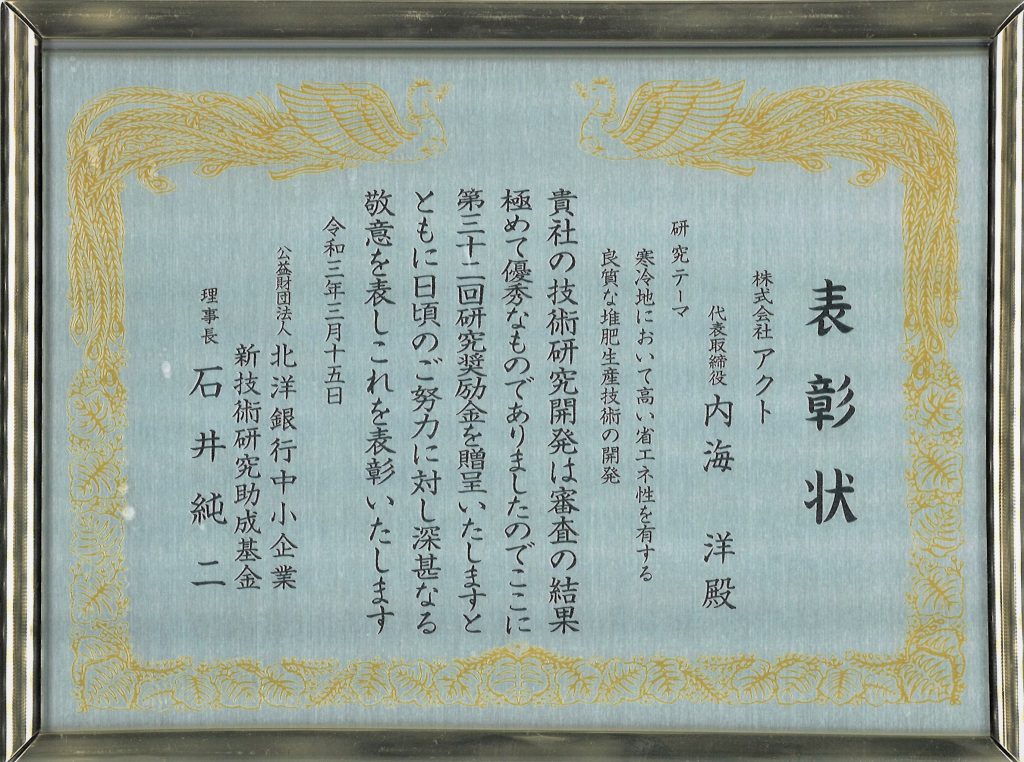 表彰状
株式会社 アクト
代表取締役 内海 洋 殿
研究テーマ
寒冷地において高い省エネ性を有する
良質な堆肥生産技術の開発
貴社の技術研究開発は審査の結果
極めて優秀なものでありましたのでここに
第三十二回研究奨励金を贈呈いたしますと
ともに日頃のご努力に対し深甚なる
敬意を表しこれを表彰いたします
令和三年三月十五日
公益財団法人 北洋銀行中小企業
新技術研究助成基金
理事長 石井純二